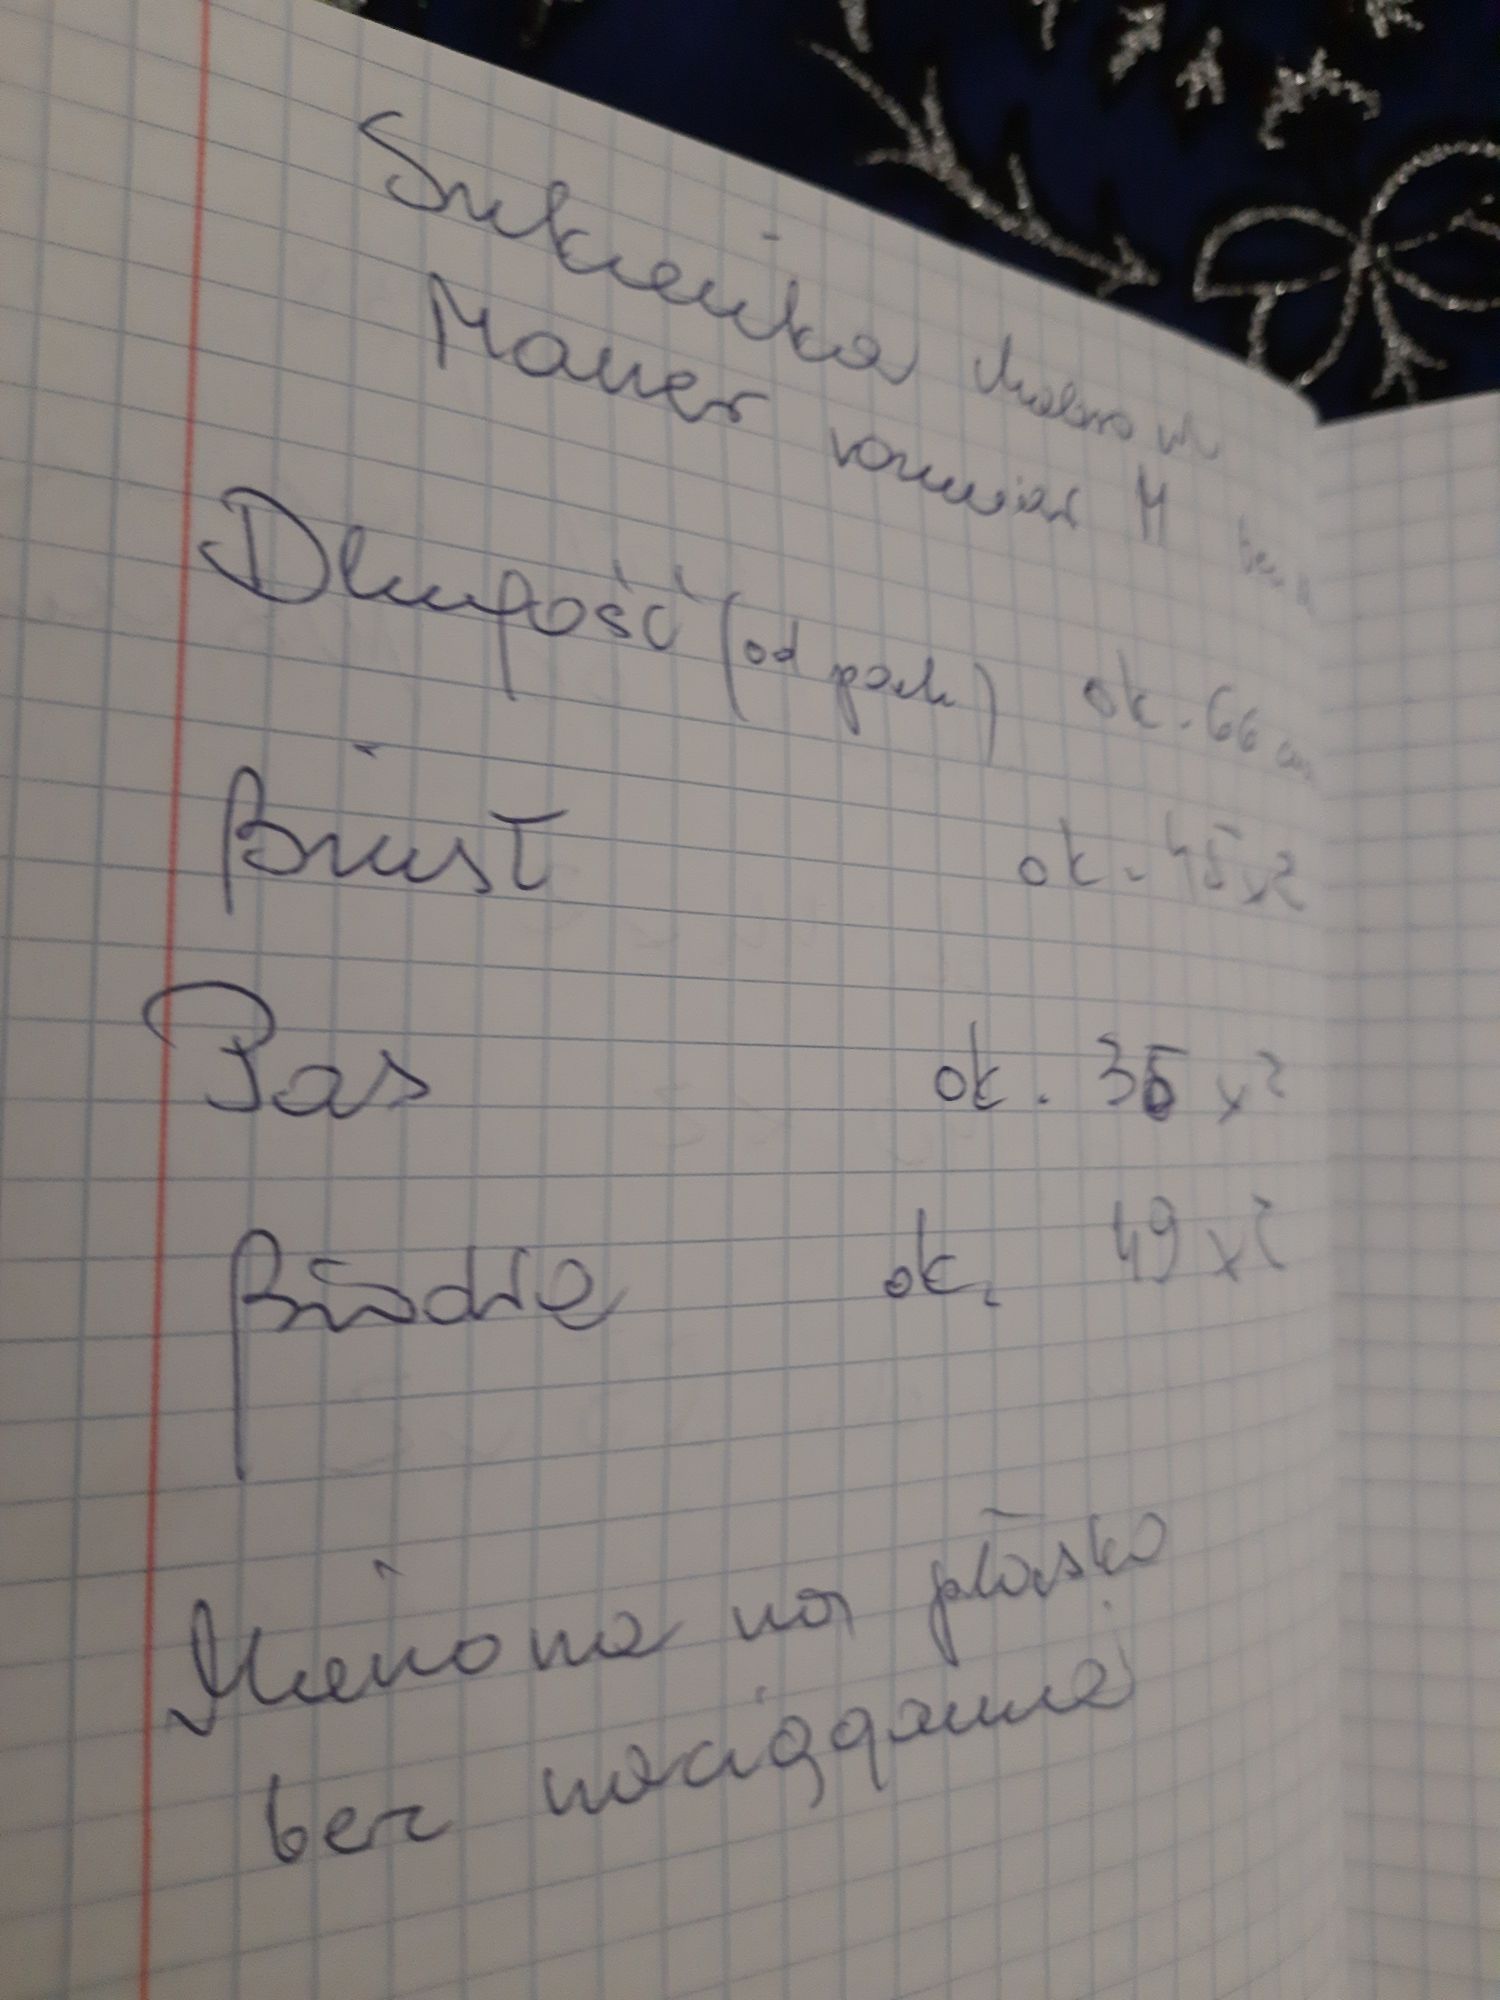 Sukienka
rozmiar M
Długość (od pach) ok. 66 cm
Biust ok. 45x2
Pas ok. x2
Biodra ok. 49x2
Mierzona na płasko
bez naciągania